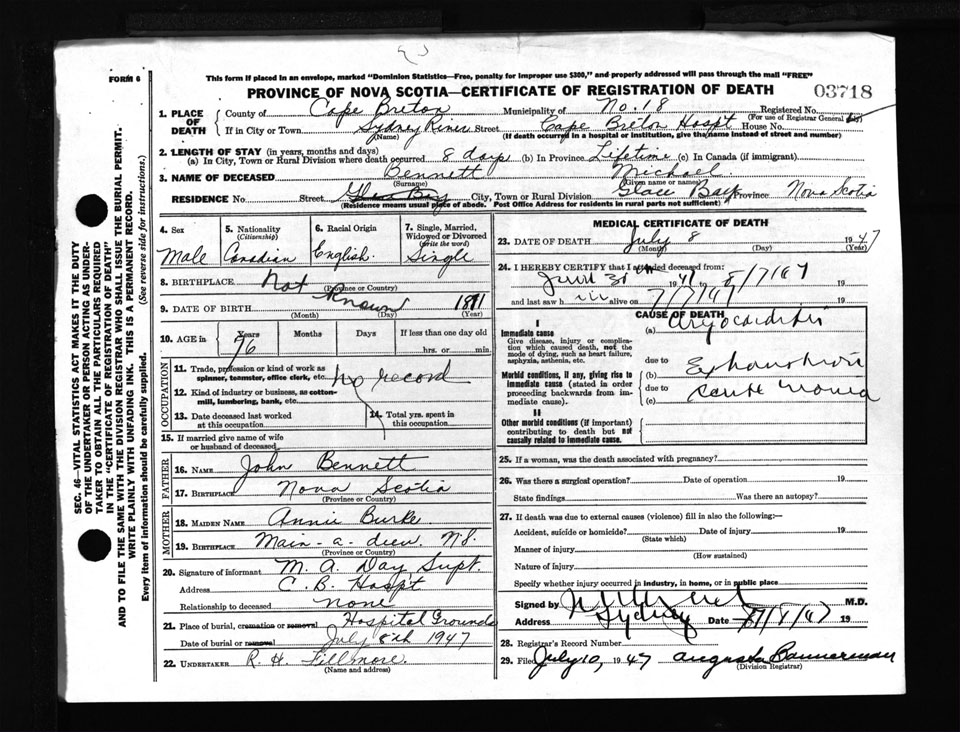 FORM 6
This form if placed in an envelope, marked "Dominion Statistics—Free, penalty for improper use $300," and properly addressed will pass through the mail "FREE"
PROVINCE OF NOVA SCOTIA—CERTIFICATE OF REGISTRATION OF DEATH
03718
1. PLACE OF DEATH
County of Cape Breton Municipality of No. 18 Registered No.
(For use of Registrar General
If in City or Town Sydney River Street Cape Breton Hospt House No.
(Name) (If death occurred in a hospital or institution, give the name instead of street and number)
2. LENGTH OF STAY (in years, months and days)
(a) In City, Town or Rural Division where death occurred 8 days (b) In Province Lifetime (c) In Canada (if immigrant)
3. NAME OF DECEASED Bennett Michael
(Surname) (Given name or names)
RESIDENCE No. Street Glace Bay City, Town or Rural Division Glace Bay Province Nova Scotia
(Residence means usual place of abode. Post Office Address for residents in rural parts not sufficient)
4. Sex
Male
5. Nationality
(Citizenship)
Canadian
6. Racial Origin
English.
7. Single, Married, Widowed or Divorced
(write the word)
Single
8. BIRTHPLACE Not Known
(Province or Country)
9. DATE OF BIRTH 1871
(Month) (Day) (Year)
10. AGE in Years Months Days If less than one day old
76 hrs. or min.
OCCUPATION
11. Trade, profession or kind of work as spinner, teamster, office clerk, etc. No record
12. Kind of industry or business, as cotton-mill, lumbering, bank, etc.
13. Date deceased last worked at this occupation
14. Total yrs. spent in this occupation
15. If married give name of wife or husband of deceased
FATHER
16. NAME John Bennett
17. Birthplace Nova Scotia
(Province or Country)
MOTHER
18. MAIDEN NAME Annie Burke
19. BIRTHPLACE Main-a-dieu N.S.
(Province or Country)
20. Signature of informant M. A. Day Supt.
Address C. B. Hospt
Relationship to deceased none
21. Place of burial, cremation or removal Hospital Grounds
Date of burial or removal July 8th 1947
22. UNDERTAKER R. H. Fillmore.
(Name and address)
MEDICAL CERTIFICATE OF DEATH
23. DATE OF DEATH July 8 1947
(Month) (Day) (Year)
24. I HEREBY CERTIFY that I attended deceased from:
19 47 to 8/7/47 19
and last saw h im alive on 7/7/47 19
CAUSE OF DEATH
I
Immediate cause
Give disease, injury or complication which caused death, not the mode of dying, such as heart failure, asphyxia, asthenia, etc.
(a) Myocarditis
due to
Morbid conditions, if any, giving rise to immediate cause (stated in order proceeding backwards from immediate cause).
Exhaustion
due to
(c) acute mania
II
Other morbid conditions (if important) contributing to death but not causally related to immediate cause.
25. If a woman, was the death associated with pregnancy?
26. Was there a surgical operation? Date of operation 19
State findings Was there an autopsy?
27. If death was due to external causes (violence) fill in also the following:—
Accident, suicide or homicide? Date of injury 19
(State which)
Manner of injury
(How sustained)
Nature of injury
Specify whether injury occurred in industry, in home, or in public place
Signed by M.D.
Address Sydney Date 8/47 19
28. Registrar's Record Number
29. Filed July 10, 1947 Augusta Bannerman
(Division Registrar)
SEC. 46—VITAL STATISTICS ACT MAKES IT THE DUTY
OF THE UNDERTAKER OR PERSON ACTING AS UNDER-
TAKER TO OBTAIN ALL THE PARTICULARS REQUIRED
IN THE "CERTIFICATE OF REGISTRATION OF DEATH"
AND TO FILE THE SAME WITH THE DIVISION REGISTRAR WHO SHALL ISSUE THE BURIAL PERMIT.
WRITE PLAINLY WITH UNFADING INK. THIS IS A PERMANENT RECORD.
Every item of information should be carefully supplied. (See reverse side for instructions.)